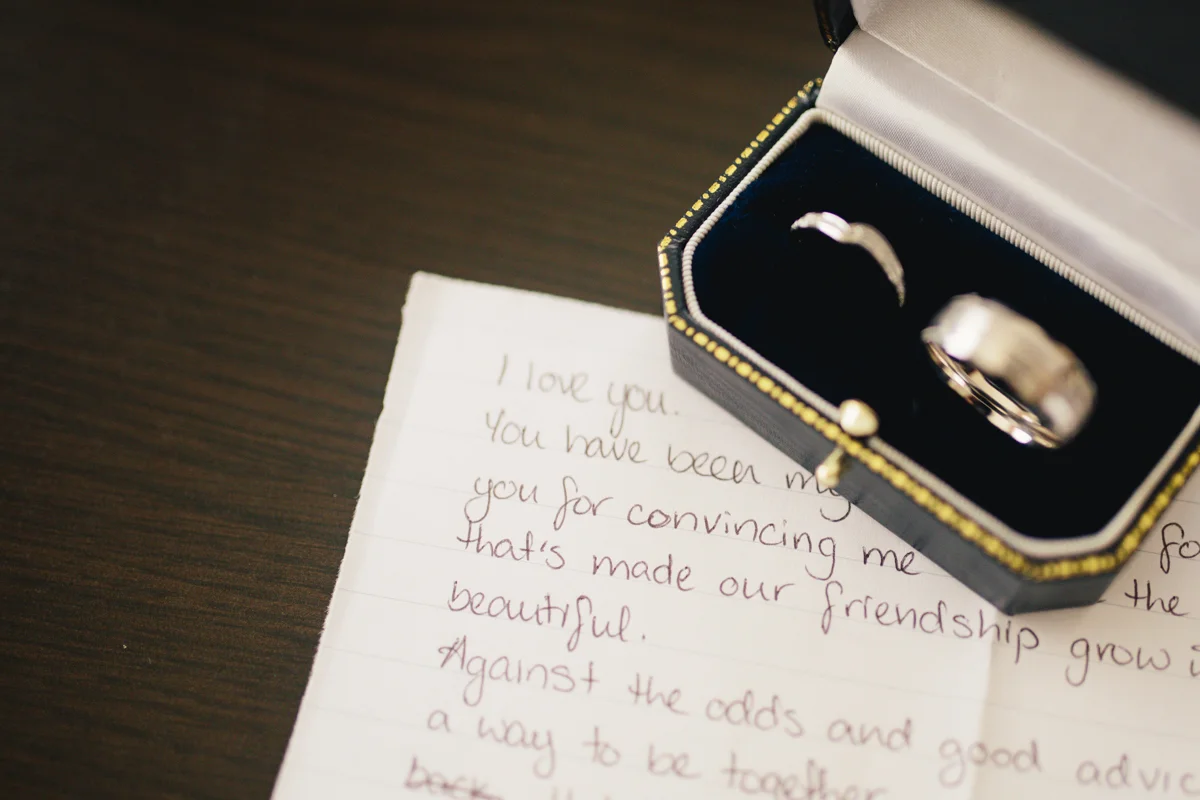 I love you.
You have been my
you for convincing me the
that's made our friendship grow i
beautiful.
Against the odds and good advic
a way to be together
back